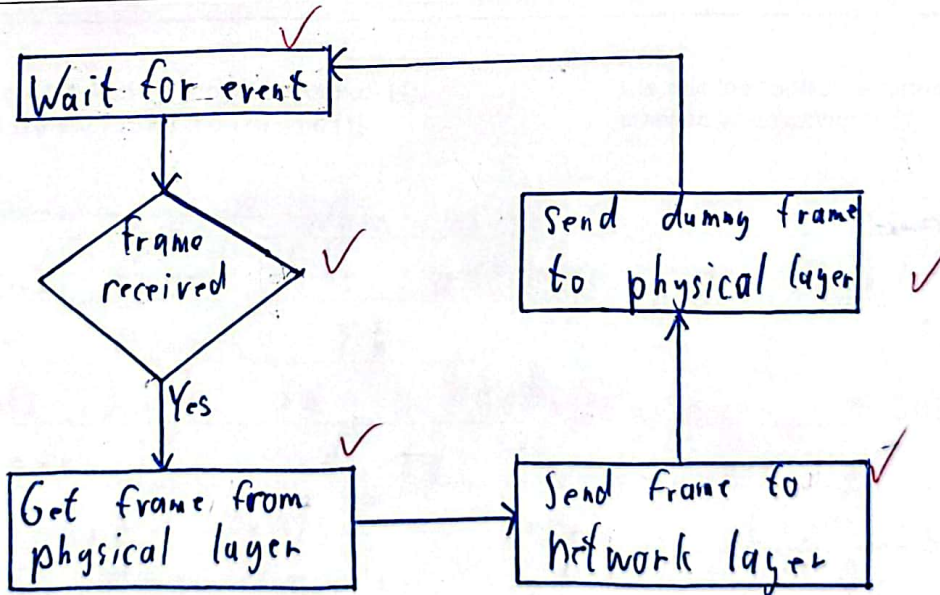 Wait for event
frame
received
Yes
Get frame from
physical layer
Send frame to
network layer
Send dummy frame
to physical layer